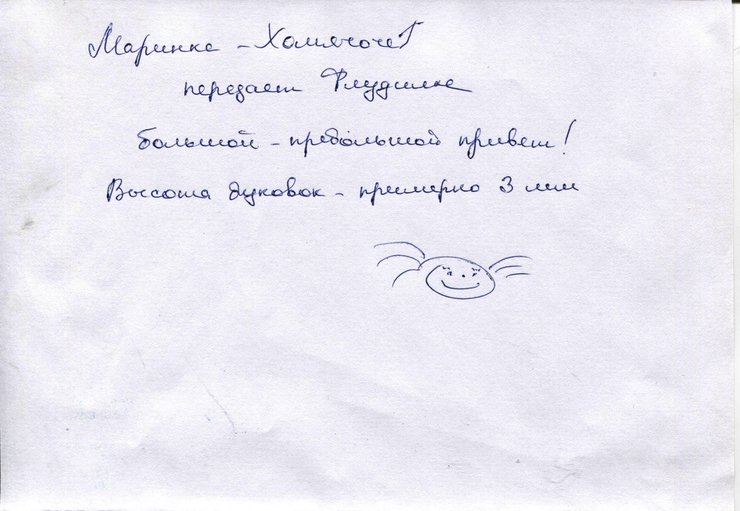 Маринка - Хомячочек
передает Флудилке
большой - пребольшой привет!
Высота буковок - примерно 3 мм